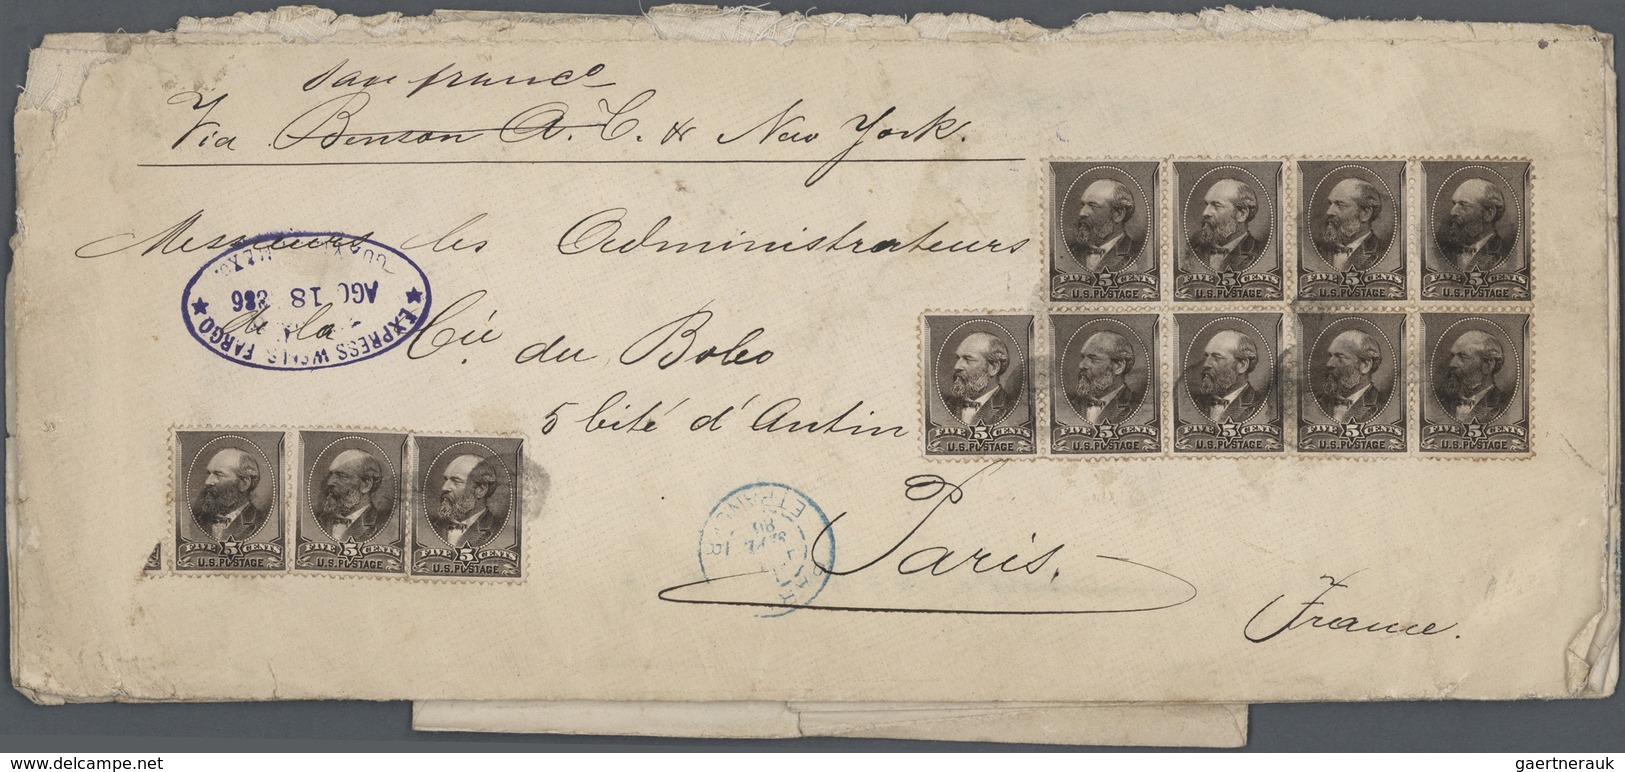 San franco
Via Benson A. C. & New York.
Messieurs les Administrateurs
de la Cie du Boleo
5 Cité d'Antin
Paris.
France.
EXPRESS WELLS FARGO
AGO 18 886
GUAYMAS MEX.
ETRANGER
86
FIVE 5 CENTS
U.S. POSTAGE
FIVE 5 CENTS
U.S. POSTAGE
FIVE 5 CENTS
U.S. POSTAGE
FIVE 5 CENTS
U.S. POSTAGE
FIVE 5 CENTS
U.S. POSTAGE
FIVE 5 CENTS
U.S. POSTAGE
FIVE 5 CENTS
U.S. POSTAGE
FIVE 5 CENTS
U.S. POSTAGE
FIVE 5 CENTS
U.S. POSTAGE
FIVE 5 CENTS
U.S. POSTAGE
FIVE 5 CENTS
U.S. POSTAGE
FIVE 5 CENTS
U.S. POSTAGE
www.delcampe.net
gaertnerauk